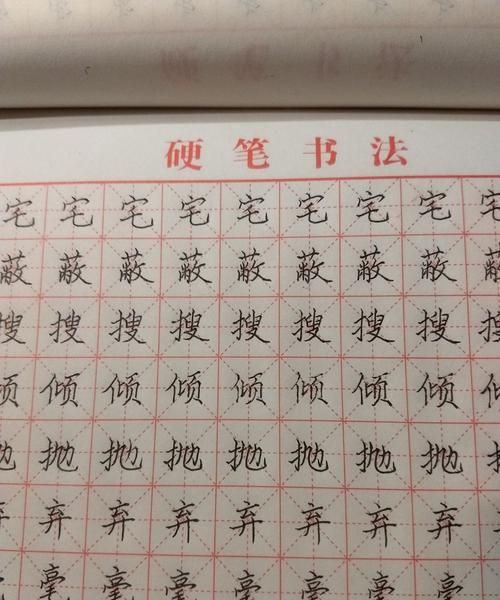 硬笔书法
宅宅宅宅宅宅宅宅宅
蔽蔽蔽蔽蔽蔽蔽蔽蔽
搜搜搜搜搜搜搜搜搜
倾倾倾倾倾倾倾倾倾
抛抛抛抛抛抛抛抛抛
弃弃弃弃弃弃弃弃弃
毫毫毫毫毫毫毫